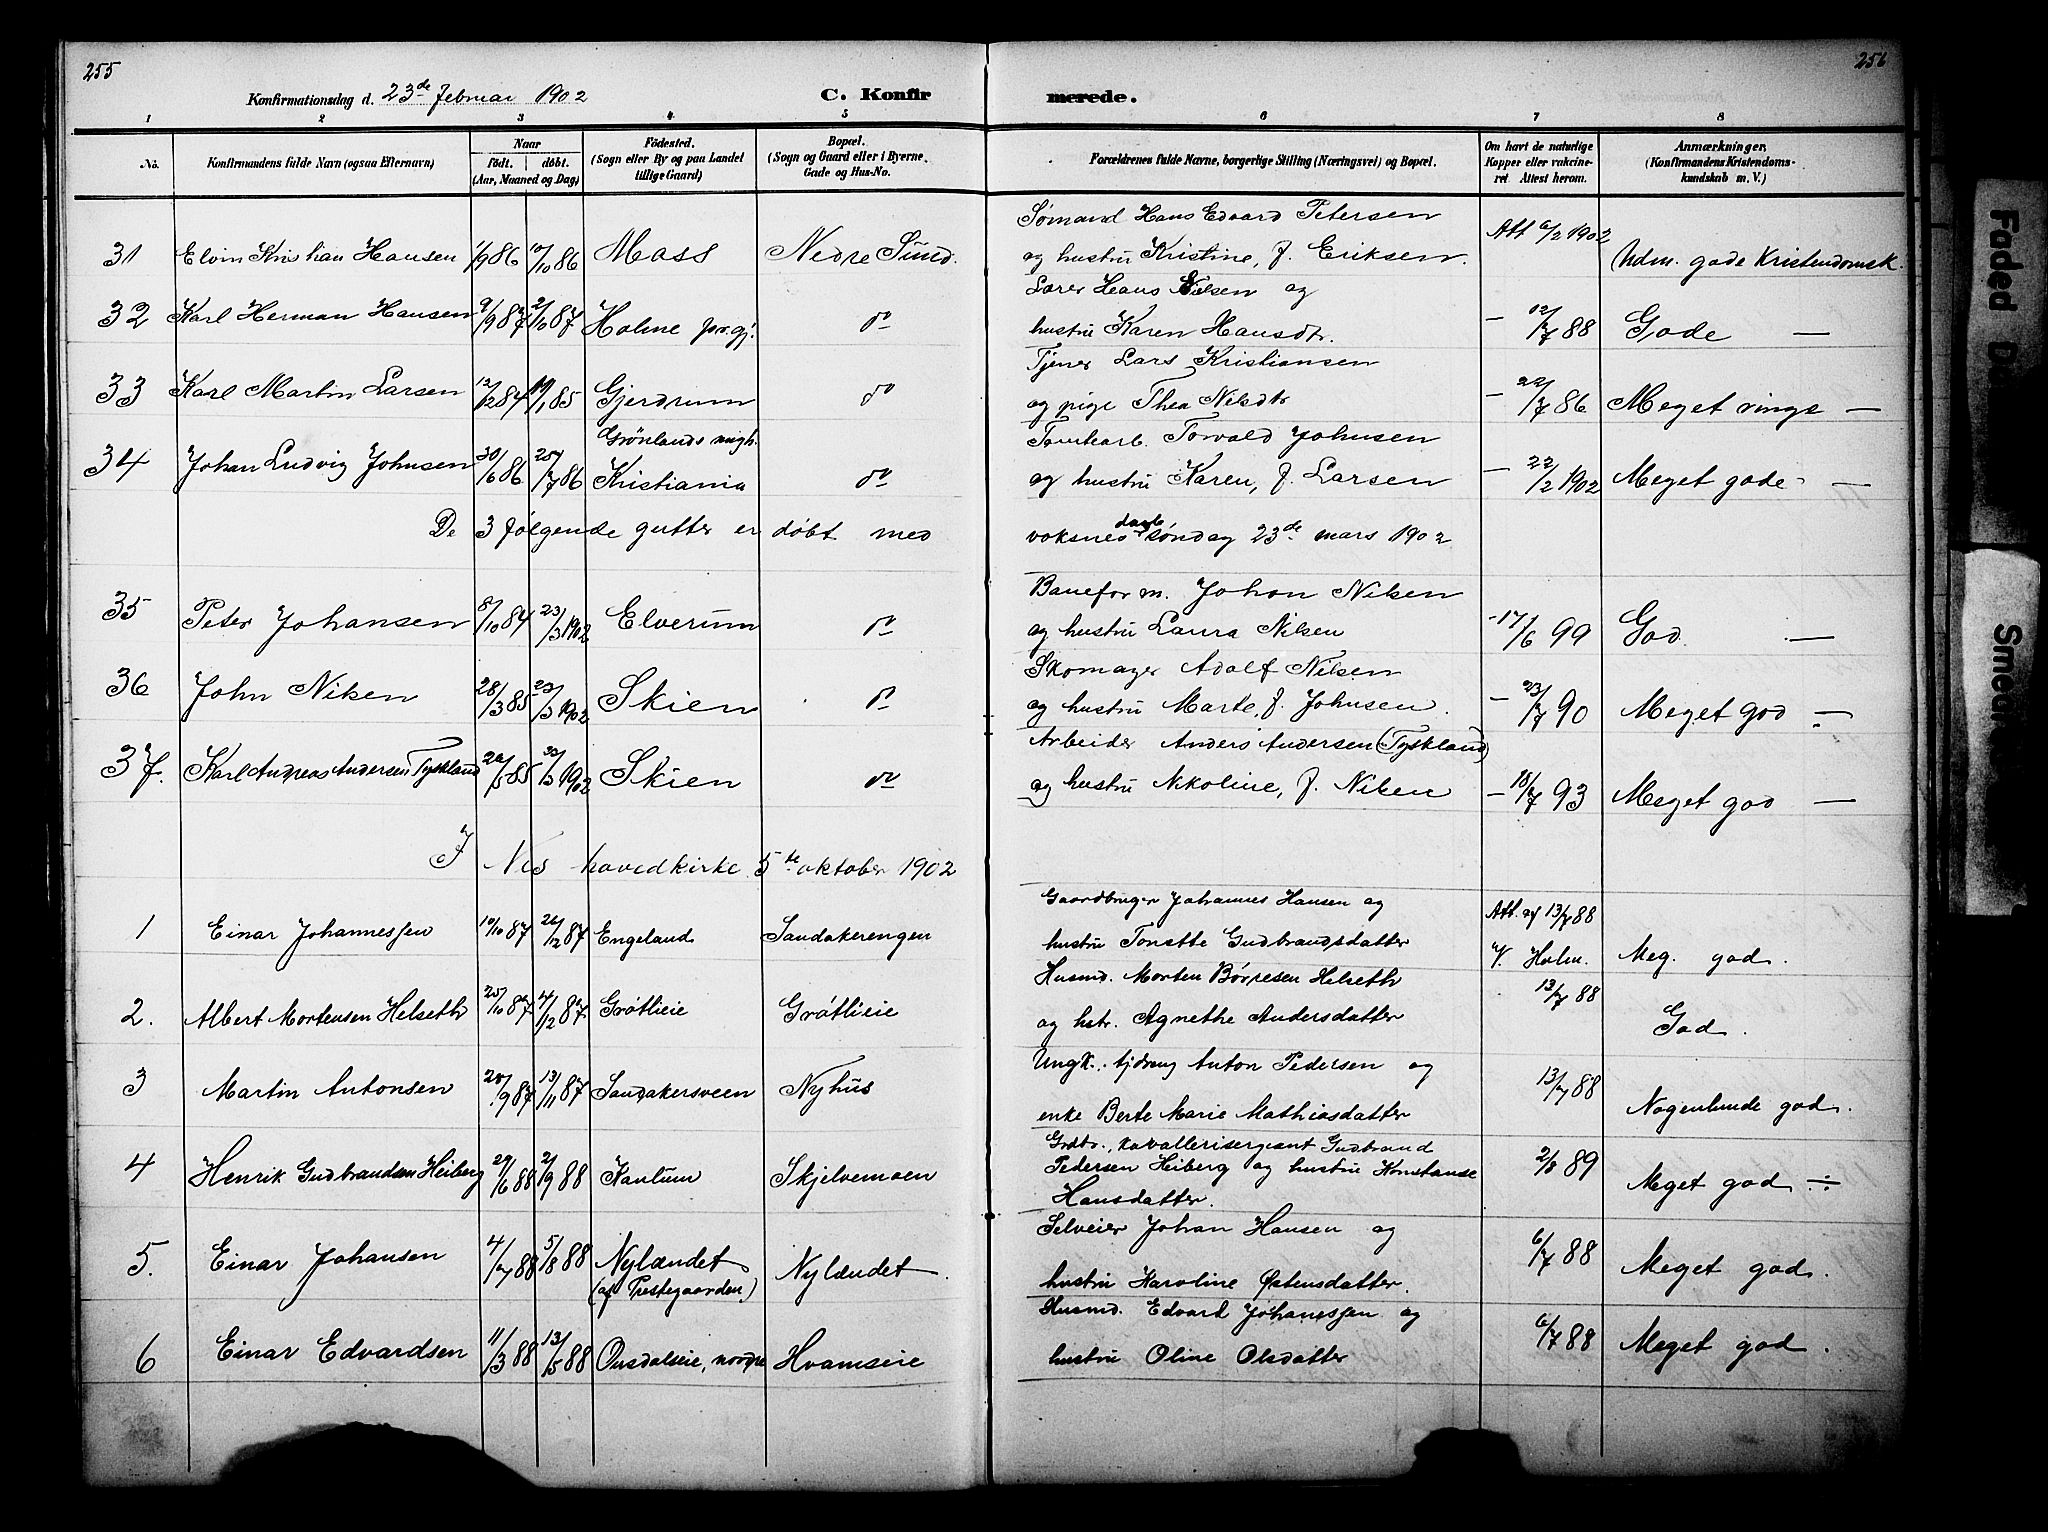 255
256
Konfirmationsdag d. 23de Februar 1902
C. Konfirmerede.
1 2 3 4 5 6 7 8
No. Konfirmandens fulde Navn (ogsaa Efternavn) Naar födt. döbt. (Aar, Maaned og Dag) Födested. (Sogn eller By og paa Landet tillige Gaard) Bopæl. (Sogn og Gaard eller i Byerne, Gade og Hus-No. Forældrenes fulde Navne, borgerlige Stilling (Næringsvei) og Bopæl. Om havt de naturlige Kopper eller vakcineret. Attest herom. Anmærkninger. (Konfirmandens Kristendomskundskab m. V.)
Sømand Hans Edvard Petersen
31 Elvin Kristian Hansen 1/9 86 10/10 86 Moss Nedre Sund. og hustru Kristine, f. Eriksen. Att 6/2 1902 Udm. gode Kristendomsk.
Lærer Hans Nilsen og
32 Karl Herman Hansen 9/9 87 2/10 87 Holme pr. gj. do hustru Karen Hansdtr. — 12/7 88 Gode —
Tjener Lars Kristiansen
33 Karl Martin Larsen 12/12 84 19/1 85 Gjerdrum do og pige Thea Nilsdtr — 22/7 86 Meget ringe —
Grønlands migh. Tomtearb. Torvald Johnsen
34 Johan Ludvig Johnsen 30/6 86 25/7 86 Kristiania do og hustru Karen, f. Larsen — 22/2 1902 Meget gode —
De 3 følgende gutter er døbt med voksnes daab søndag 23de mars 1902
Baneform. Johan Nilsen
35 Peter Johansen 8/10 84 23/3 1902 Elverum do og hustru Laura Nilsen — 17/6 99 God. —
Skomager Adolf Nilsen
36 John Nilsen 28/3 85 23/3 1902 Skien do og hustru Marte, f. Johnsen. — 23/7 90 Meget god —
Arbeider Anders Andersen (Tyskland)
37. Karl Andreas Andersen Tyskland 20/5 85 23/3 1902 Skien do og hustru Nikoline, f. Nilsen — 18/7 93 Meget god —
I Nes hovedkirke 5te oktober 1902
Gaardbruger Johannes Hansen og Att. af 13/7 88
1 Einar Johannessen 10/10 87 26/12 87 Engeland Sandakerengen hustru Tonette Gudbrandsdatter V. Holm. Meg. god.
Husmd. Morten Børresen Helseth
2. Albert Mortensen Helseth 25/10 87 4/12 87 Grøtlieie Grøtlieie og hstr. Agnethe Andersdatter 13/7 88 God.
Ungk., tjdreng Anton Pedersen og
3 Martin Antonsen 20/9 87 13/11 87 Sandakersveen Nyhus enke Berte Marie Mathiasdatter 13/7 88 Nogenlunde god.
Grdbr., kavallerisergeant Gudbrand
4 Henrik Gudbrandsen Heiberg 29/6 88 2/9 88 Kavlum Skjelvemoen Pedersen Heiberg og hustru Konstanse 2/8 89 Meget god ÷
Hansdatter.
Selveier Johan Hansen og
5. Einar Johansen 4/7 88 5/8 88 Nylændet (af Prestegaarden) Nylændet hustru Karoline Østensdatter. 6/7 88 Meget god.
Husmd. Edvard Johanessen og
6 Einar Edvardsen 11/3 88 13/5 88 Onsdalseie, nordre Hvamseie hustru Oline Olsdatter 6/7 88 Meget god.
Faded
Smea